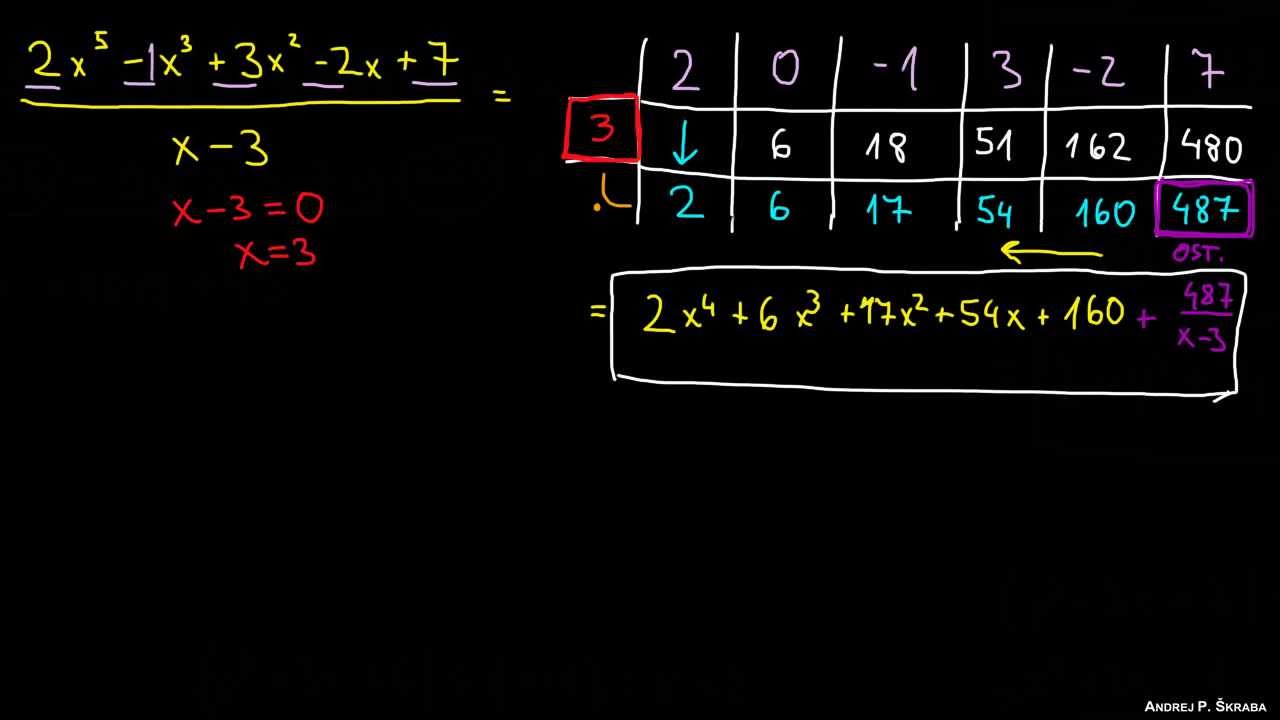 2x⁵ -1x³ + 3x² - 2x + 7 =
x - 3
x - 3 = 0
x = 3
2 0 -1 3 -2 7
3 ↓ 6 18 51 162 480
· 2 6 17 54 160 487
← OST.
= 2x⁴ + 6x³ + 17x² + 54x + 160 + 487
x-3
ANDREJ P. ŠKRABA